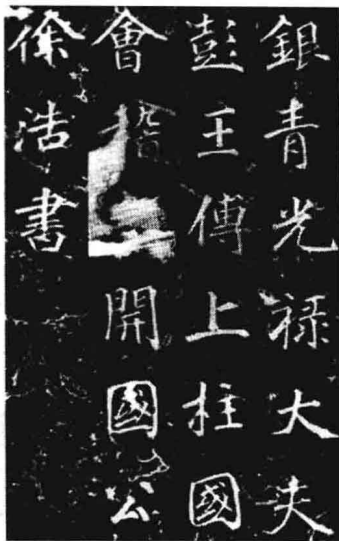 銀青光禄大夫
彭王傅上柱國
會稽開國公
徐浩書